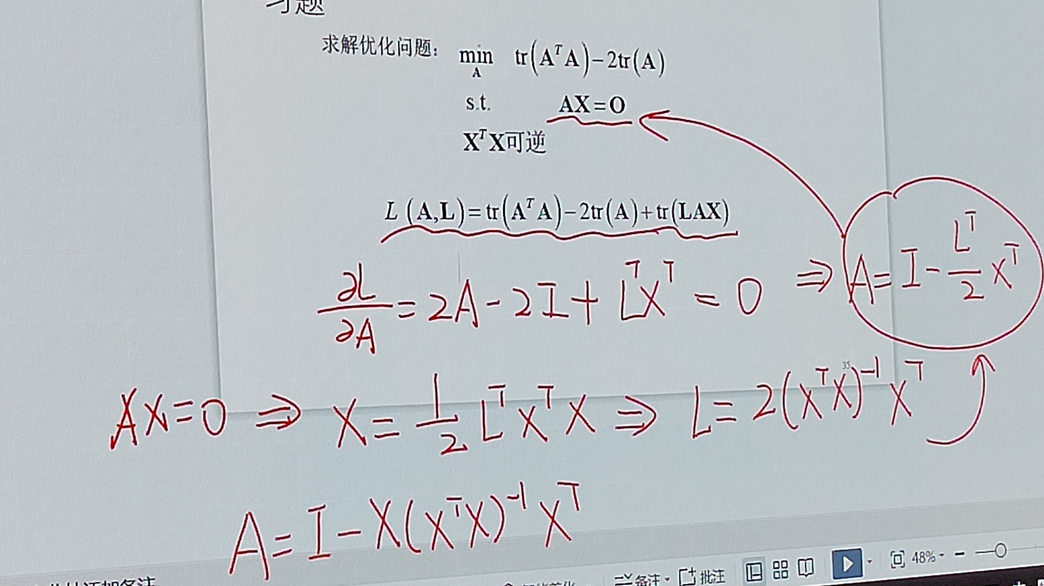 习题
求解优化问题: min_A tr(A^T A)−2tr(A)
s.t. AX=O
X^T X可逆
L(A,L)=tr(A^T A)−2tr(A)+tr(LAX)
∂L/∂A = 2A − 2I + L^T X^T = 0 ⇒ A = I − L^T/2 X^T
AX=0 ⇒ X = 1/2 L^T X^T X ⇒ L = 2(X^T X)^-1 X^T
A = I − X(X^T X)^-1 X^T
备注 批注 48%